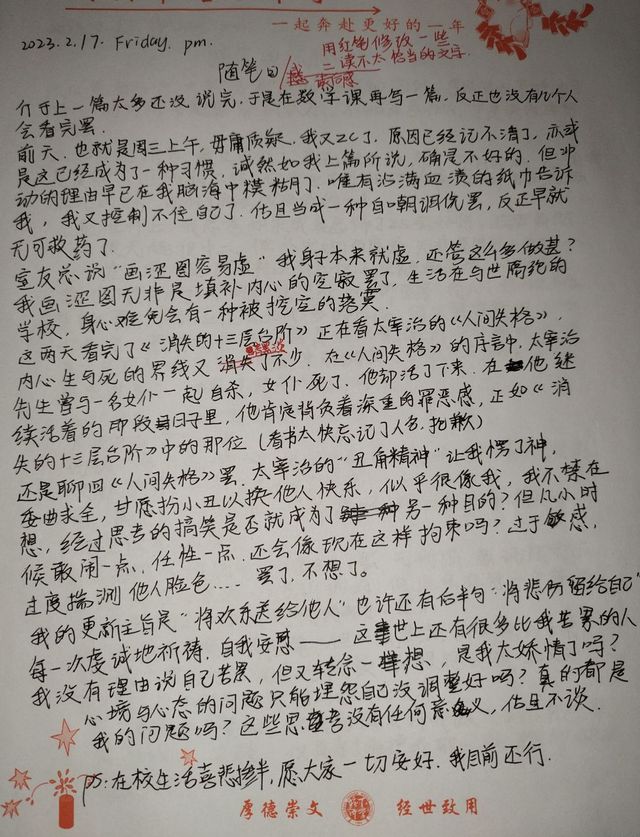 一起奔赴更好的一年
2023.2.17. Friday. pm.
用红笔修改一些
二读不太恰当的文字.
随笔曰
介于上一篇太多还没说完, 于是在数学课再写一篇. 反正也没有几个人
会看完罢.
前天. 也就是周三上午, 毋庸质疑. 我又zc了. 原因已经记不清了, 亦或
是这已经成为了一种习惯. 诚然如我上篇所说, 确是不好的. 但冲
动的理由早已在我脑海中模糊了. 唯有沾满血渍的纸巾告诉
我, 我又控制不住自己了. 估且当成一种自嘲调侃罢, 反正早就
无可救药了.
室友总说"画涩图容易虚" 我身子本来就虚. 还管这么多做甚?
我画涩图无非是填补内心的空寂罢了, 生活在与世隔绝的
学校, 身心难免会有一种被挖空的落寞.
这两天看完了《消失的十三层台阶》正在看太宰治的《人间失格》,
内心生与死的界线又不少. 在《人间失格》的序言中, 太宰治
先生曾与一名女仆一起自杀, 女仆死了. 他却活了下来. 在他继
续活着的那段日子里, 他肯底背负着深重的罪恶感, 正如《消
失的十三层台阶》中的那位 (看书太快忘记了人名, 抱歉)
还是聊回《人间失格》罢. 太宰治的"丑角精神"让我愣了神,
委曲求全, 甘愿扮小丑以换他人快乐, 似乎很像我, 我不禁在
想, 经过思考的搞笑是否就成为了另一种目的? 但凡小时
候敢闹一点, 任性一点. 还会像现在这样拘束吗? 过于敏感,
过度揣测他人脸色…… 罢了, 不想了。
我的更新主旨是"将欢乐送给他人" 也许还有后半句: "将悲伤留给自己"
每一次虔诚地祈祷. 自我安慰—— 这世上还有很多比我苦累的人
我没有理由说自己苦累, 但又转念一想, 是我太娇情了吗?
心境与心态的问题只能埋怨自己没调整好吗? 真的都是
我的问题吗? 这些思考没有任何意义, 估且不谈.
ps: 在校生活喜悲掺半, 愿大家一切安好. 我目前还行.
厚德崇文 经世致用